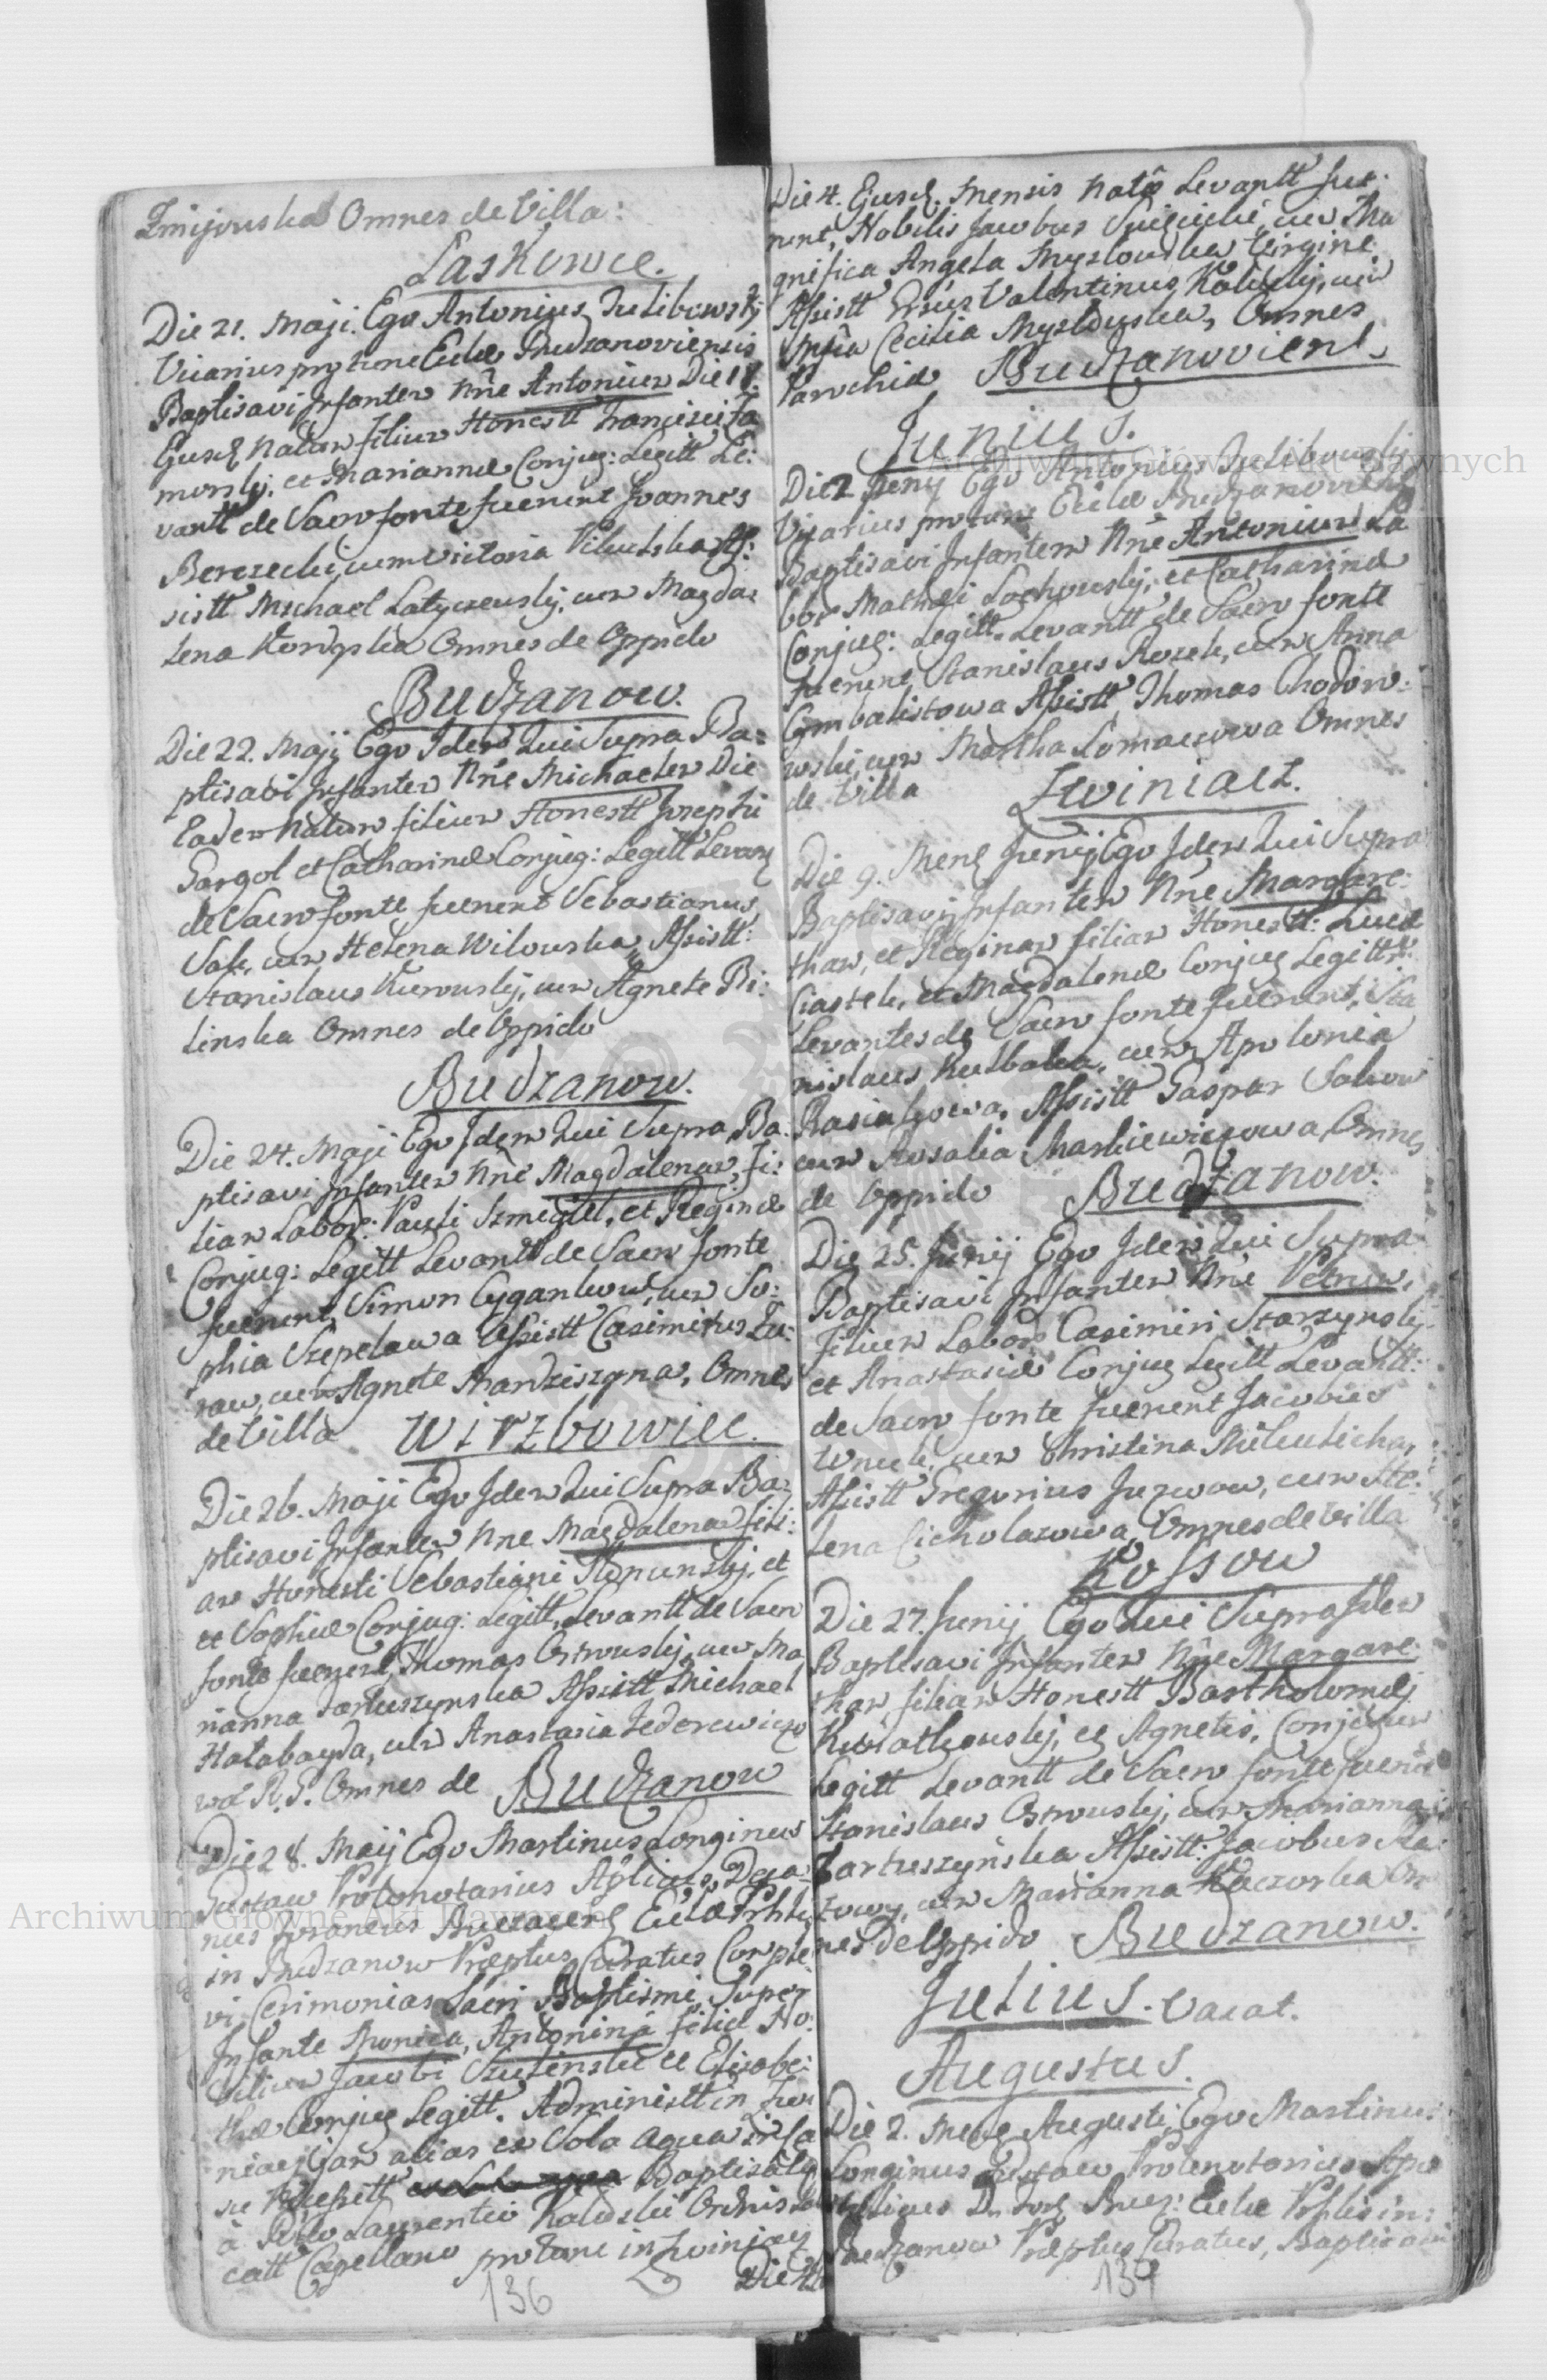 Zmijouska Omnes de Villa:
Laskowce.
Die 21. Maji. Ego Antonius Julibowskj
Vicarius pro tunc Eccl Budzanoviensis
Baptisavi Infantem Nne Antonium Die 18.
Ejusd Natum filium Honestt Francisci Za
morskj, et Mariannæ Conjug: Legitt Le:
vantt de Sacro fonte fuerunt Joannes
Berezecki, cum Victoria As:
sistt Michael Latyczewskj, cum Magda:
lena Omnes de Oppido
Budzanow.
Die 22. Maij Ego Idem Qui Supra Ba:
ptisavi Infantem Nne Michaelem Die
Eadem Natum filium Honestt Josephi
Gargol et Catharinæ Conjug: Legitt Levan
de Sacro fonte fuerunt Sebastianus
Sak, cum Helena Wilowska, Assistt:
Stanislaus Kurowskj, cum Agnete Bi:
linska Omnes de Oppido
Budzanow.
Die 24. Maji Ego Idem Qui Supra Ba:
ptisavi Infantem Nne Magdalenam, fi:
liam Labor: Pauli Szmegiel, et Reginæ
Conjug: Legitt Levantt de Sacro fonte
fuerunt, Simon Cygankow, cum So:
phia Szepelawa Assistt Casimirus Zu:
raw, cum Agnete Mandziszyna, Omnes
de Villa Wirzbowiec.
Die 26. Maji Ego Idem Qui Supra Ba:
ptisavi Infantem Nne Magdalenam fili:
am Honesti Sebastiani et
et Sophiæ Conjug: Legitt, Levantt de Sacro
fonte fuerunt, Thomas Ostrouskj, cum Ma
rianna Tartuszynska Assistt Michael
Halabayda, cum Anastasia Federewiczo
wa R. G. Omnes de Budzanow
Die 28. Maij Ego Martinus Longinus
Gustaw Protonotarius Aplicus, Deca:
nus Foraneus Buczacens Eccl Prhli
in Budzanow Præptus Curatus Comple
vi Cerimonias Sacri Baptismi Super
Infante Monica, Antonina filia No:
bilium Jacobi Szulinski et Elisabe:
thæ Conjug Legitt. Administt in Zwi
niacz jam alias ex Sola aqua in Ca
su Necessitt Baptisatæ
à Pillo Laurentio Kaliski Ordinis
catt Capellano pro tunc in Zwiniacz
Die 4
136
Die 4. Ejusd. Mensis Natæ Levantt fue:
runt, Nobilis Jacobus cum Ma
gnifica Angela Myslowska Virgine
Assistt Valentinus Kaliskj, cum
Mfca Cecilia Myslowska, Omnes
Parochiæ Budzanoviens.
Junius.
Die 2 Junij Ego Antonius Julibowskj
Vicarius pro tunc Eccliæ Budzanoviens
Baptisavi Infantem Nne Antonium La
bor Mathæi Lachowskj, et Catharinæ
Conjug: Legitt. Levantt de Sacro fonte
fuerunt Stanislaus Rozek, cum Anna
Cymbalistowa Assistt Thomas Chodow:
wski, cum Martha Lomaczowa Omnes
de Villa Zwiniacz.
Die 9. Mens Junij Ego Idem Qui Supra
Baptisavi Infantem Nne Margare:
tham, et Reginam filiam Honestt: Lucæ
Ciastek, et Magdalenæ Conjug Legitt.
Levantes de Sacro fonte fuerunt, Sta
nislaus Kulbaka, cum Apolonia
Rasiakowa, Assistt Gaspar Sakow
cum Rosalia Markiewiczowa, Omnes
de Oppido Budzanow.
Die 25. Junij Ego Idem Qui Supra
Baptisavi Infantem Nne Petrum,
Filium Labors Casimiri Starzynskj
et Anastasiæ Conjug Legitt Levantt:
de Sacro fonte fuerunt Jacobus
Wnuk, cum Christina
Assistt Gregorius Juzwow, cum He:
lena Cicholazowa, Omnes de Villa
Kossow
Die 27. Junij Ego Qui Supra Idem
Baptisavi Infantem Nne Margare:
tham, filiam Honestt Bartholomæj
Kwiatkouskj, et Agnetis, Conjugum
Legitt Levantt de Sacro fonte fuerunt
Stanislaus Ostrouskj, cum Marianna
Tartuszynska Assistt: Jacobus Ra:
towy, cum Marianna Kaczorka Om
nes De Oppido Budzanow.
Julius. Vacat.
Augustus.
Die 2. Mens Augusti, Ego Martinus
Longinus Gustaw Protonotarius Apo
stolicus D. For Bucz: Eccle Prhlis in:
Budzanow Præptus Curatus, Baptisavi
137
Archiwum Główne Akt Dawnych
Archiwum Główne Akt Dawnych